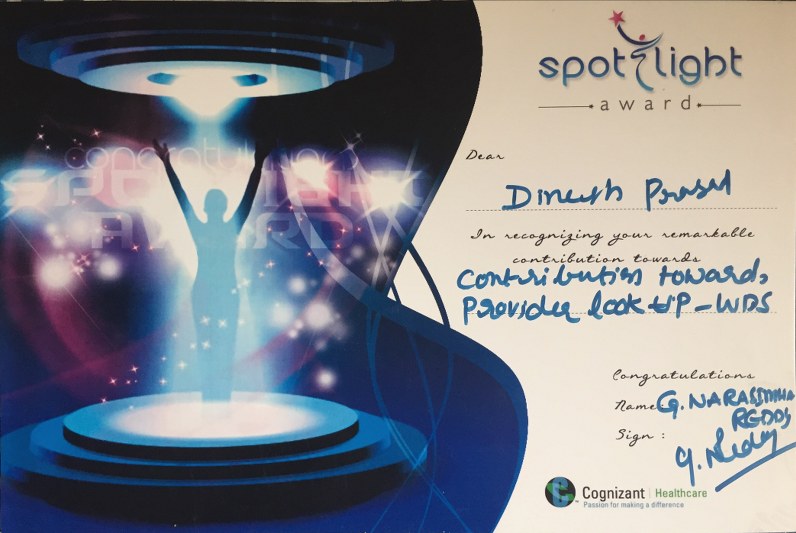 spotlight
award
congratulations
SPOTLIGHT
AWARD
Dear
Dinesh Prasad
In recognizing your remarkable
contribution towards
Contribution towards
Provider look UP - WDS
Congratulations
Name G. NARASIMHA
REDDY
Sign :
G. Reddy
Cognizant | Healthcare
Passion for making a difference